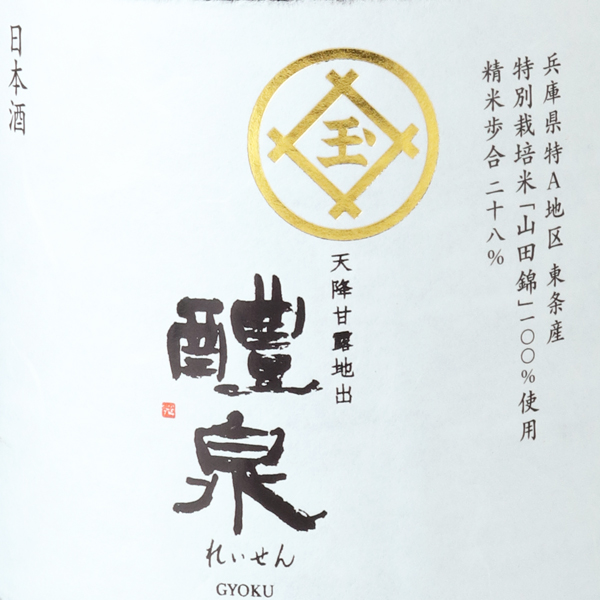 兵庫県特A地区 東条産
特別栽培米「山田錦」一〇〇%使用
精米歩合 二十八%
玉
天降甘露地出
醴泉
れいせん
GYOKU
日本酒